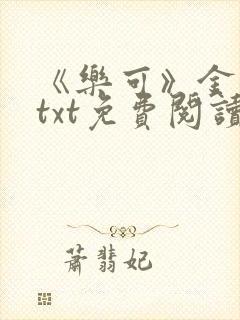 《樂可》全
txt免費閱讀
蕭翡妃